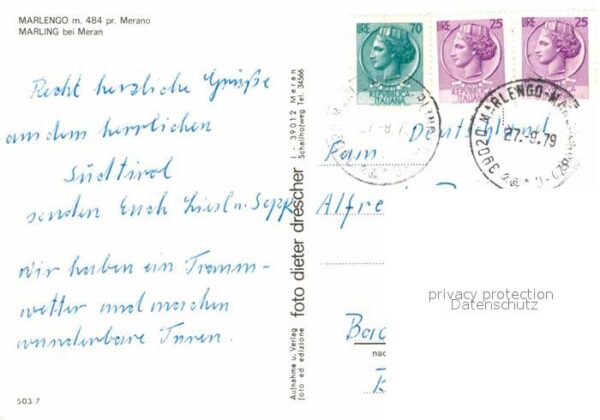 MARLENGO m. 484 pr. Merano
MARLING bei Meran
Recht herzliche Grüße
aus dem herrlichen
Südtirol
senden Euch Liesl u. Sepp
Wir haben ein Traum-
wetter und machen
wunderbare Turen.
503.7
Aufnahme u. Verlag
foto ed edizione
foto dieter drescher
I - 39012 Meran
Schallhofweg Tel. 34566
LIRE 70
REPUBBLICA
ITALIANA
LIRE 25
REPUBBLICA
ITALIANA
LIRE 25
39020 MARLENGO-MA
27.-9.79
Deutschland
Fam.
Alfre
privacy protection
Datenschutz
Bad
nac